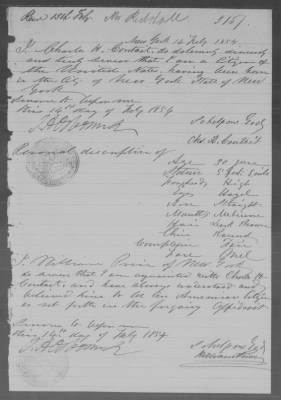 Recd 15th Feby. Mr. 3157.
New York 14 Feby 1854
I, Charles H. Contait, do solemnly sincerely
and truly swear that I am a Citizen of
the United States, having been born
in the City of New York State of New
York
Sworn to before me
this 14th day of Feby 1854
So help me God
Chs. H. Contait
Personal description of
Age 30 years
Stature 5 feet
Forehead High
Eyes Hazel
Nose Straight
Mouth Medium
Hair Dark Brown
Chin Round
Complexion Fair
Face Oval
I, William of New York
do swear that I am acquainted with Charles H.
Contait, and have always understood and
believed him to be an American Citizen
as set forth in the foregoing Affidavit
Sworn to before me
this 14th day of Feby 1854
So help me God
William